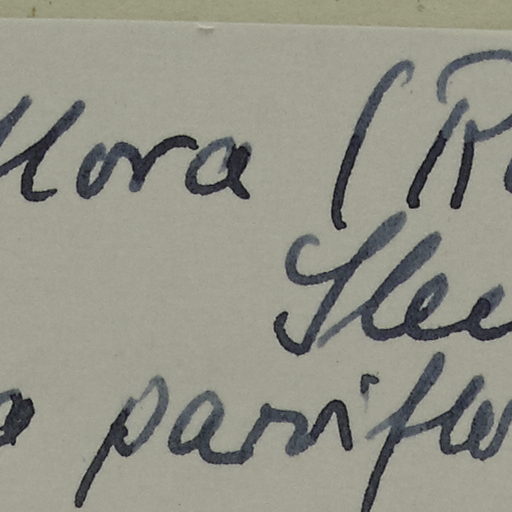 flora (R
Slee
parviflo